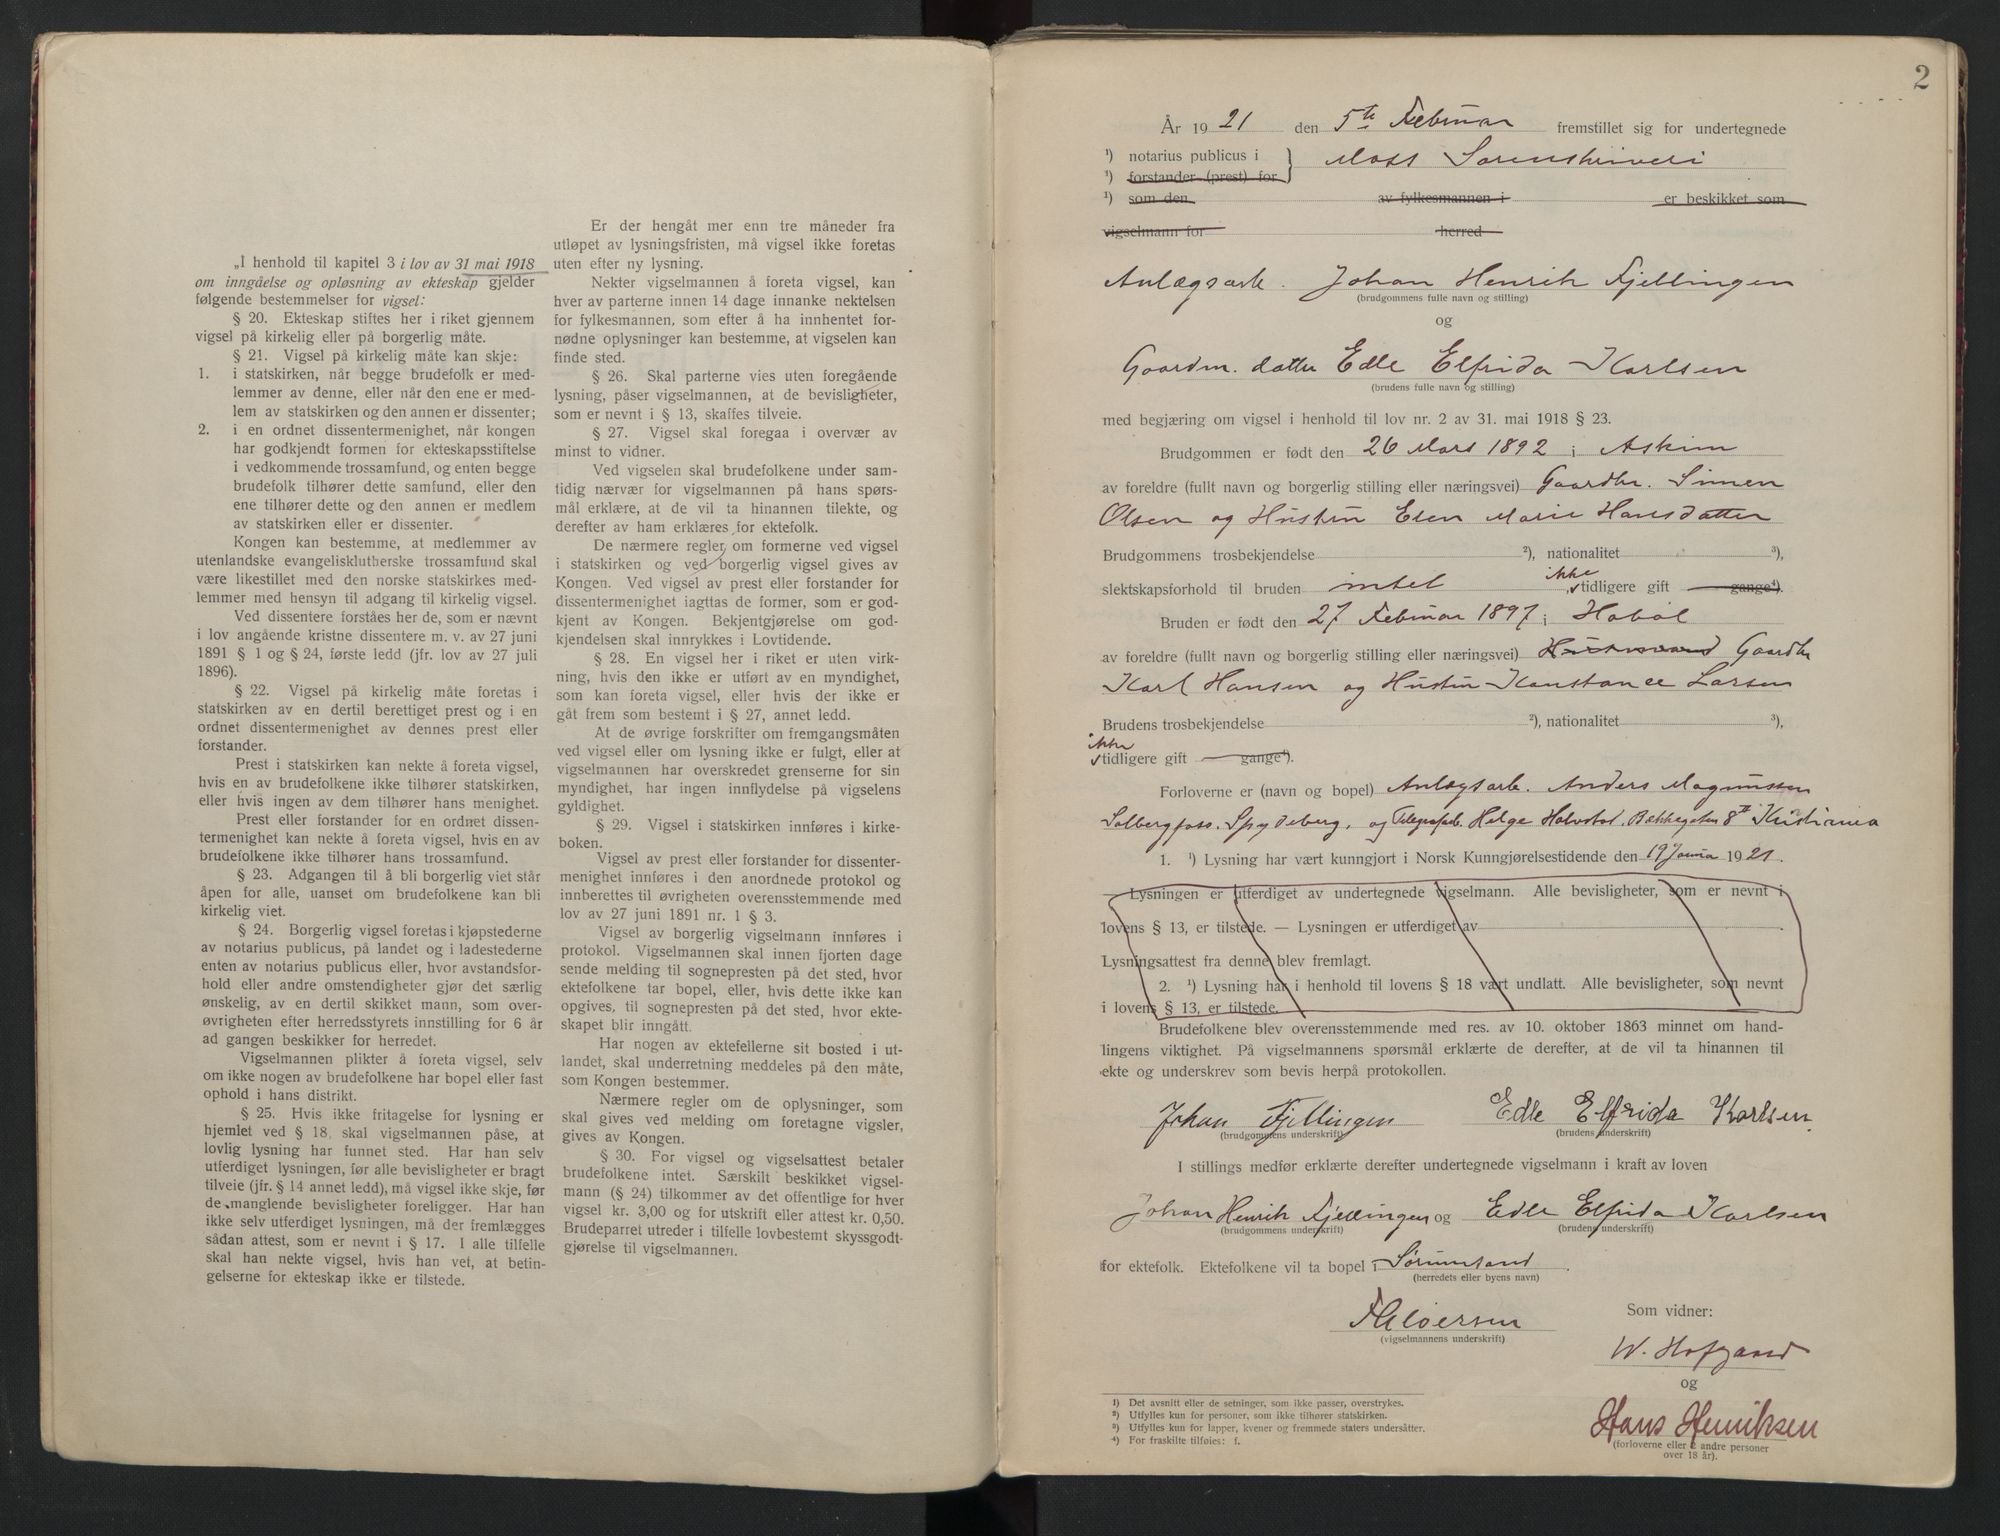 „I henhold til kapitel 3 i lov av 31 mai 1918
om inngåelse og opløsning av ekteskap gjelder
følgende bestemmelser for vigsel:
§ 20. Ekteskap stiftes her i riket gjennem
vigsel på kirkelig eller på borgerlig måte.
§ 21. Vigsel på kirkelig måte kan skje:
1. i statskirken, når begge brudefolk er med-
lemmer av denne, eller når den ene er med-
lem av statskirken og den annen er dissenter;
2. i en ordnet dissentermenighet, når kongen
har godkjendt formen for ekteskapsstiftelse
i vedkommende trossamfund, og enten begge
brudefolk tilhører dette samfund, eller den
ene tilhører dette og den annen er medlem
av statskirken eller er dissenter.
Kongen kan bestemme, at medlemmer av
utenlandske evangelisklutherske trossamfund skal
være likestillet med den norske statskirkes med-
lemmer med hensyn til adgang til kirkelig vigsel.
Ved dissentere forståes her de, som er nævnt
i lov angående kristne dissentere m. v. av 27 juni
1891 § 1 og § 24, første ledd (jfr. lov av 27 juli
1896).
§ 22. Vigsel på kirkelig måte foretas i
statskirken av en dertil berettiget prest og i en
ordnet dissentermenighet av dennes prest eller
forstander.
Prest i statskirken kan nekte å foreta vigsel,
hvis en av brudefolkene ikke tilhører statskirken,
eller hvis ingen av dem tilhører hans menighet.
Prest eller forstander for en ordnet dissen-
termenighet kan nekte å foreta vigsel, hvis en av
brudefolkene ikke tilhører hans trossamfund.
§ 23. Adgangen til å bli borgerlig viet står
åpen for alle, uanset om brudefolkene kan bli
kirkelig viet.
§ 24. Borgerlig vigsel foretas i kjøpstederne
av notarius publicus, på landet og i ladestederne
enten av notarius publicus eller, hvor avstandsfor-
hold eller andre omstendigheter gjør det særlig
ønskelig, av en dertil skikket mann, som over-
øvrigheten efter herredsstyrets innstilling for 6 år
ad gangen beskikker for herredet.
Vigselmannen plikter å foreta vigsel, selv
om ikke nogen av brudefolkene har bopel eller fast
ophold i hans distrikt.
§ 25. Hvis ikke fritagelse for lysning er
hjemlet ved § 18, skal vigselmannen påse, at
lovlig lysning har funnet sted. Har han selv
utferdiget lysningen, før alle bevisligheter er bragt
tilveie (jfr. § 14 annet ledd), må vigsel ikke skje, før
de manglende bevisligheter foreligger. Har han
ikke selv utferdiget lysningen, må der fremlægges
sådan attest, som er nevnt i § 17. I alle tilfelle
skal han nekte vigsel, hvis han vet, at betin-
gelserne for ekteskap ikke er tilstede.
Er der hengåt mer enn tre måneder fra
utløpet av lysningsfristen, må vigsel ikke foretas
uten efter ny lysning.
Nekter vigselmannen å foreta vigsel, kan
hver av parterne innen 14 dage innanke nektelsen
for fylkesmannen, som efter å ha innhentet for-
nødne oplysninger kan bestemme, at vigselen kan
finde sted.
§ 26. Skal parterne vies uten foregående
lysning, påser vigselmannen, at de bevisligheter,
som er nevnt i § 13, skaffes tilveie.
§ 27. Vigsel skal foregaa i overvær av
minst to vidner.
Ved vigselen skal brudefolkene under sam-
tidig nærvær for vigselmannen på hans spørs-
mål erklære, at de vil ta hinannen tilekte, og
derefter av ham erklæres for ektefolk.
De nærmere regler om formerne ved vigsel
i statskirken og ved borgerlig vigsel gives av
Kongen. Ved vigsel av prest eller forstander for
dissentermenighet iagttas de former, som er god-
kjent av Kongen. Bekjentgjørelse om god-
kjendelsen skal innrykkes i Lovtidende.
§ 28. En vigsel her i riket er uten virk-
ning, hvis den ikke er utført av en myndighet,
som kan foreta vigsel, eller hvis der ikke er
gåt frem som bestemt i § 27, annet ledd.
At de øvrige forskrifter om fremgangsmåten
ved vigsel eller om lysning ikke er fulgt, eller at
vigselmannen har overskredet grenserne for sin
myndighet, har ingen innflydelse på vigselens
gyldighet.
§ 29. Vigsel i statskirken innføres i kirke-
boken.
Vigsel av prest eller forstander for dissenter-
menighet innføres i den anordnede protokol og
innberettes til øvrigheten overensstemmende med
lov av 27 juni 1891 nr. 1 § 3.
Vigsel av borgerlig vigselmann innføres i
protokol. Vigselmannen skal innen fjorten dage
sende melding til sognepresten på det sted, hvor
ektefolkene tar bopel, eller, hvis dette ikke kan
opgives, til sognepresten på det sted, hvor ekte-
skapet blir inngått.
Har nogen av ektefellerne sit bosted i ut-
landet, skal underretning meddeles på den måte,
som Kongen bestemmer.
Nærmere regler om de oplysninger, som
skal gives ved melding om foretagne vigsler,
gives av Kongen.
§ 30. For vigsel og vigselsattest betaler
brudefolkene intet. Særskilt beskikket vigsel-
mann (§ 24) tilkommer av det offentlige for hver
vigsel kr. 3,00 og for utskrift eller attest kr. 0,50.
Brudeparret utreder i tilfelle lovbestemt skyssgodt-
gjørelse til vigselmannen.
2
År 1921 den 5te Februar fremstillet sig for undertegnede
¹) notarius publicus i } Moss Sorenskriveri
¹) forstander (prest) for
¹) som den av fylkesmannen i er beskikket som
vigselmann for herred
Anlægsarb. Johan Henrik Fjellingen
(brudgommens fulle navn og stilling)
og
Gaardm. datter Edle Elfrida Karlsen
(brudens fulle navn og stilling)
med begjæring om vigsel i henhold til lov nr. 2 av 31. mai 1918 § 23.
Brudgommen er født den 26 Mars 1892 i Askim
av foreldre (fullt navn og borgerlig stilling eller næringsvei) Gaardbr. Simen
Olsen og Hustru Elen Marie Hansdatter
Brudgommens trosbekjendelse ²), nationalitet ³),
slektskapsforhold til bruden intet, ikke tidligere gift gange⁴).
Bruden er født den 27 Februar 1897 i Hobøl
av foreldre (fullt navn og borgerlig stilling eller næringsvei) Gaardbr
Karl Hansen og Hustru Konstance Larsen
Brudens trosbekjendelse ²), nationalitet ³),
ikke
tidligere gift gange⁴).
Forloverne er (navn og bopel) Anlægsarb. Anders Magnussen
Solbergfoss, Spydeberg, og Telegrafarb. Helge Halvstad, Bakkegaten 8 Kristiania
1. ¹) Lysning har vært kunngjort i Norsk Kunngjørelsestidende den 19 Januar 1921.
— Lysningen er utferdiget av undertegnede vigselmann. Alle bevisligheter, som er nevnt i
lovens § 13, er tilstede. — Lysningen er utferdiget av
Lysningsattest fra denne blev fremlagt.
2. ¹) Lysning har i henhold til lovens § 18 vært undlatt. Alle bevisligheter, som nevnt
i lovens § 13, er tilstede.
Brudefolkene blev overensstemmende med res. av 10. oktober 1863 minnet om hand-
lingens viktighet. På vigselmannens spørsmål erklærte de derefter, at de vil ta hinannen til
ekte og underskrev som bevis herpå protokollen.
Johan Fjellingen Edle Elfrida Karlsen
(brudgommens underskrift) (brudens underskrift)
I stillings medfør erklærte derefter undertegnede vigselmann i kraft av loven
Johan Henrik Fjellingen og Edle Elfrida Karlsen
(brudgommens underskrift) (brudens underskrift)
for ektefolk. Ektefolkene vil ta bopel i Sørumsand.
(herredets eller byens navn)
(vigselmannens underskrift)
Som vidner:
W. Hofgaard
og
Hans Henriksen
(forloverne eller 2 andre personer
over 18 år).
1) Det avsnitt eller de setninger, som ikke passer, overstrykes.
²) Utfylles kun for personer, som ikke tilhører statskirken.
³) Utfylles kun for lapper, kvener og fremmede staters undersåtter.
⁴) For fraskilte tilføies: f.